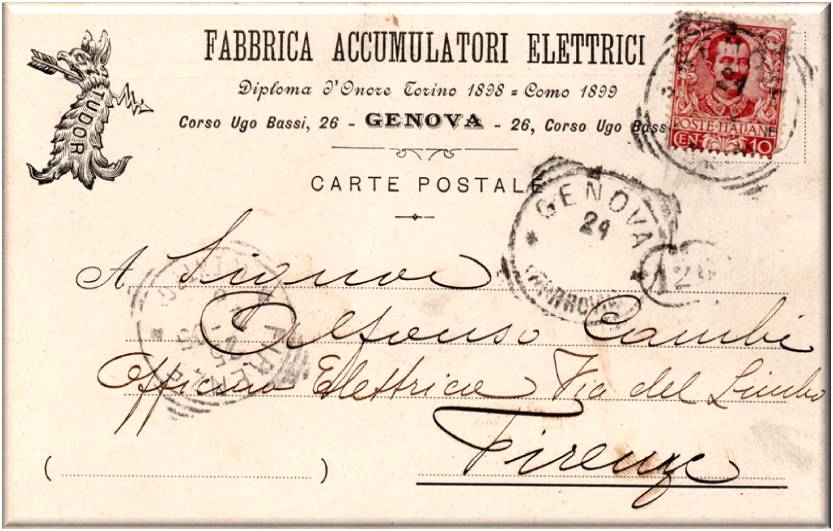 FABBRICA ACCUMULATORI ELETTRICI
Diploma d'Onore Torino 1898 = Como 1899
Corso Ugo Bassi, 26 - GENOVA - 26, Corso Ugo Bassi
TUDOR
POSTE·ITALIANE
CEN 10
CARTE POSTALE
GENOVA
24
(FERROVIA)
A Signor
Alfonso Cambi
Officina Elettrica Via del Limbo
Firenze
FIRENZE
25
( )